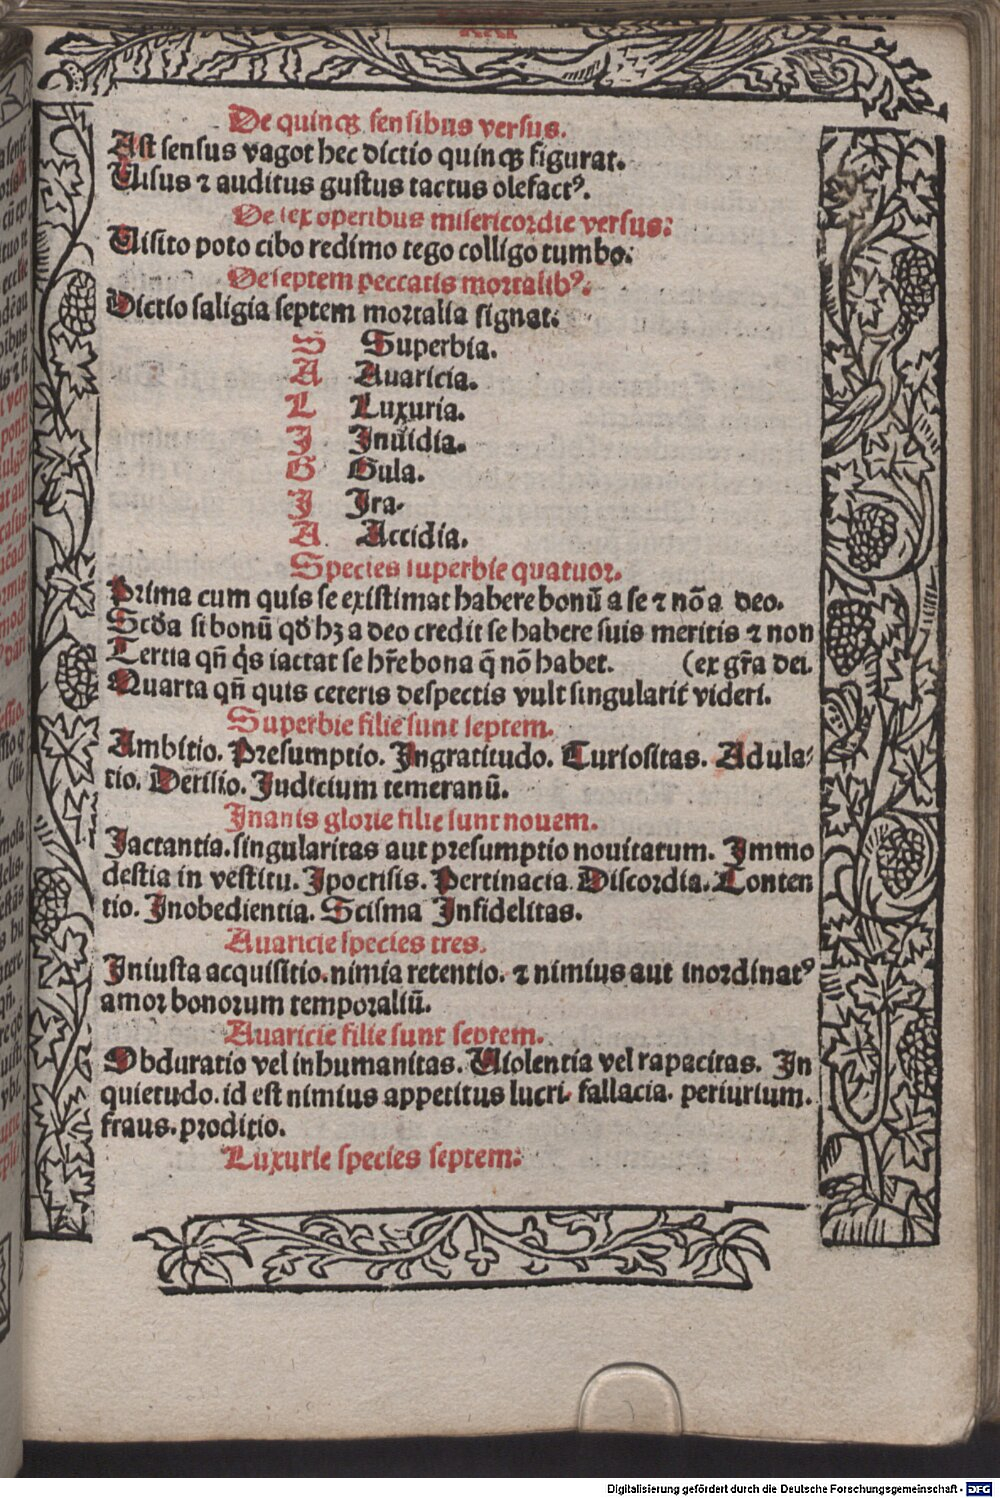 De quinqꝫ sensibus versus.
Ast sensus vagot hec dictio quinqꝫ figurat.
Uisus ⁊ auditus gustus tactus olefactꝰ.
De sex operibus misericordie versus:
Uisito poto cibo redimo tego colligo tumbo:
De septem peccatis mortalibꝰ:
Dictio saligia septem mortalia signat:
S Superbia.
A Auaricia.
L Luxuria.
I Inuidia.
G Gula.
I Ira.
A Accidia.
Species superbie quatuor.
Prima cum quis se existimat habere bonū a se ⁊ nō a deo.
Scďa si bonū qď hꝫ a deo credit se habere suis meritis ⁊ non
Tertia qñ q̇s iactat se hr̄e bona q̄ nō habet. (ex gr̄a dei.
Quarta qñ quis ceteris despectis vult singularit̄ videri.
Superbie filie sunt septem.
Ambitio. Presumptio. Ingratitudo. Curiositas. Adula-
tio. Derisio. Judicium temerariū.
Inanis glorie filie sunt nouem.
Jactantia. singularitas aut presumptio nouitatum. Immo
destia in vestitu. Ipocrisis. Pertinacia. Discordia. Conten
tio. Inobedientia. Scisma Infidelitas.
Auaricie species tres.
Iniusta acquisitio. nimia retentio. ⁊ nimius aut inordinatꝰ
amor bonorum temporaliū.
Auaricie filie sunt septem.
Obduratio vel inhumanitas. Uiolentia vel rapacitas. In
quietudo. id est nimius appetitus lucri. fallacia. periurium.
fraus. proditio.
Luxurie species septem:
Digitalisierung gefördert durch die Deutsche Forschungsgemeinschaft - DFG